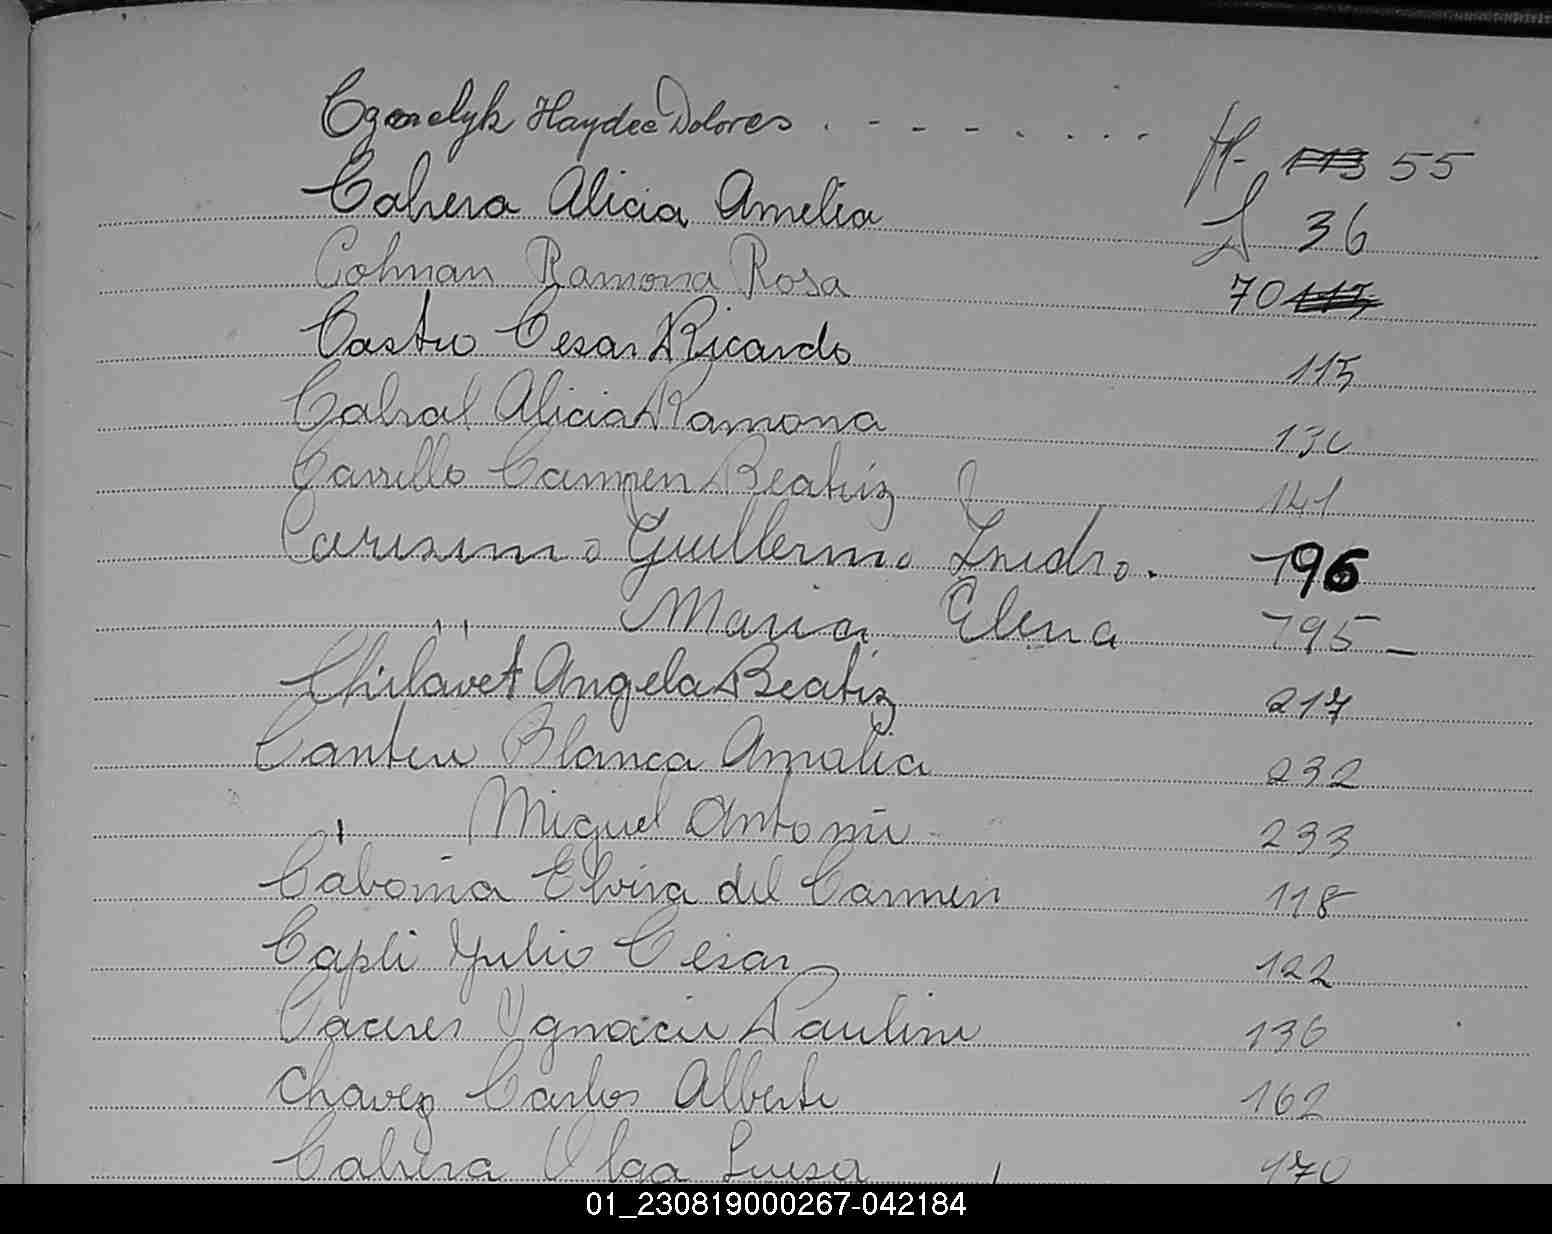 Czonelyk Haydee Dolores . - - - . . . . fl- 113 55
Cabrera Alicia Amelia fl 36
Colman Ramona Rosa 70 113
Castro Cesar Ricardo 115
Cabral Alicia Ramona 130
Carrillo Carmen Beatriz 141
Carisimo Guillermo Isidro. 196
,, Maria Elena 195 -
Chilavet Angela Beatriz 217
Cantero Blanca Amalia 232
" Miguel Antonio 233
Cabaña Elvira del Carmen 118
Capli Julio Cesar 122
Caceres Ygnacio Paulino 136
Chavez Carlos Alberto 162
Cabrera Olga Luisa 170
01_230819000267-042184